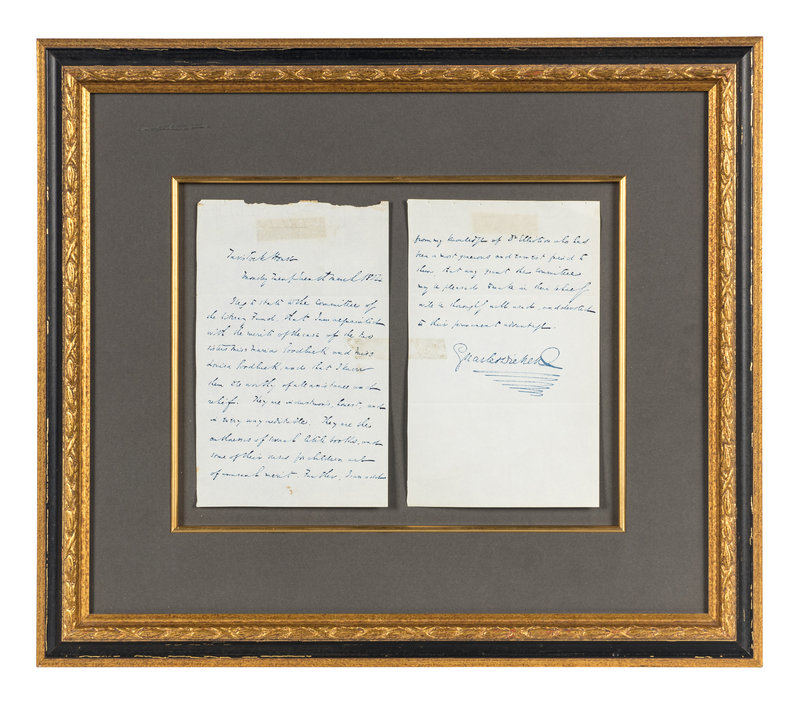 Tavistock House
Monday March
I beg to state to the Committee of
the Literary Fund that I am acquainted
with the merits of the case of the two
sisters Miss Maria Goodluck and Miss
Louisa Goodluck, and that I know
them to be worthy of all assistance and
relief. They are industrious, honest, and
in every way creditable. They are the
authoresses of several little books, and
some of their verses for children are
of unusual merit. Further, I am
from my knowledge of Dr. Elliotson who has
been a most generous and earnest friend to
them, that any grant the Committee
may be pleased to make in their behalf
will be thoroughly well and devoted
to their permanent advantage.
Charles Dickens